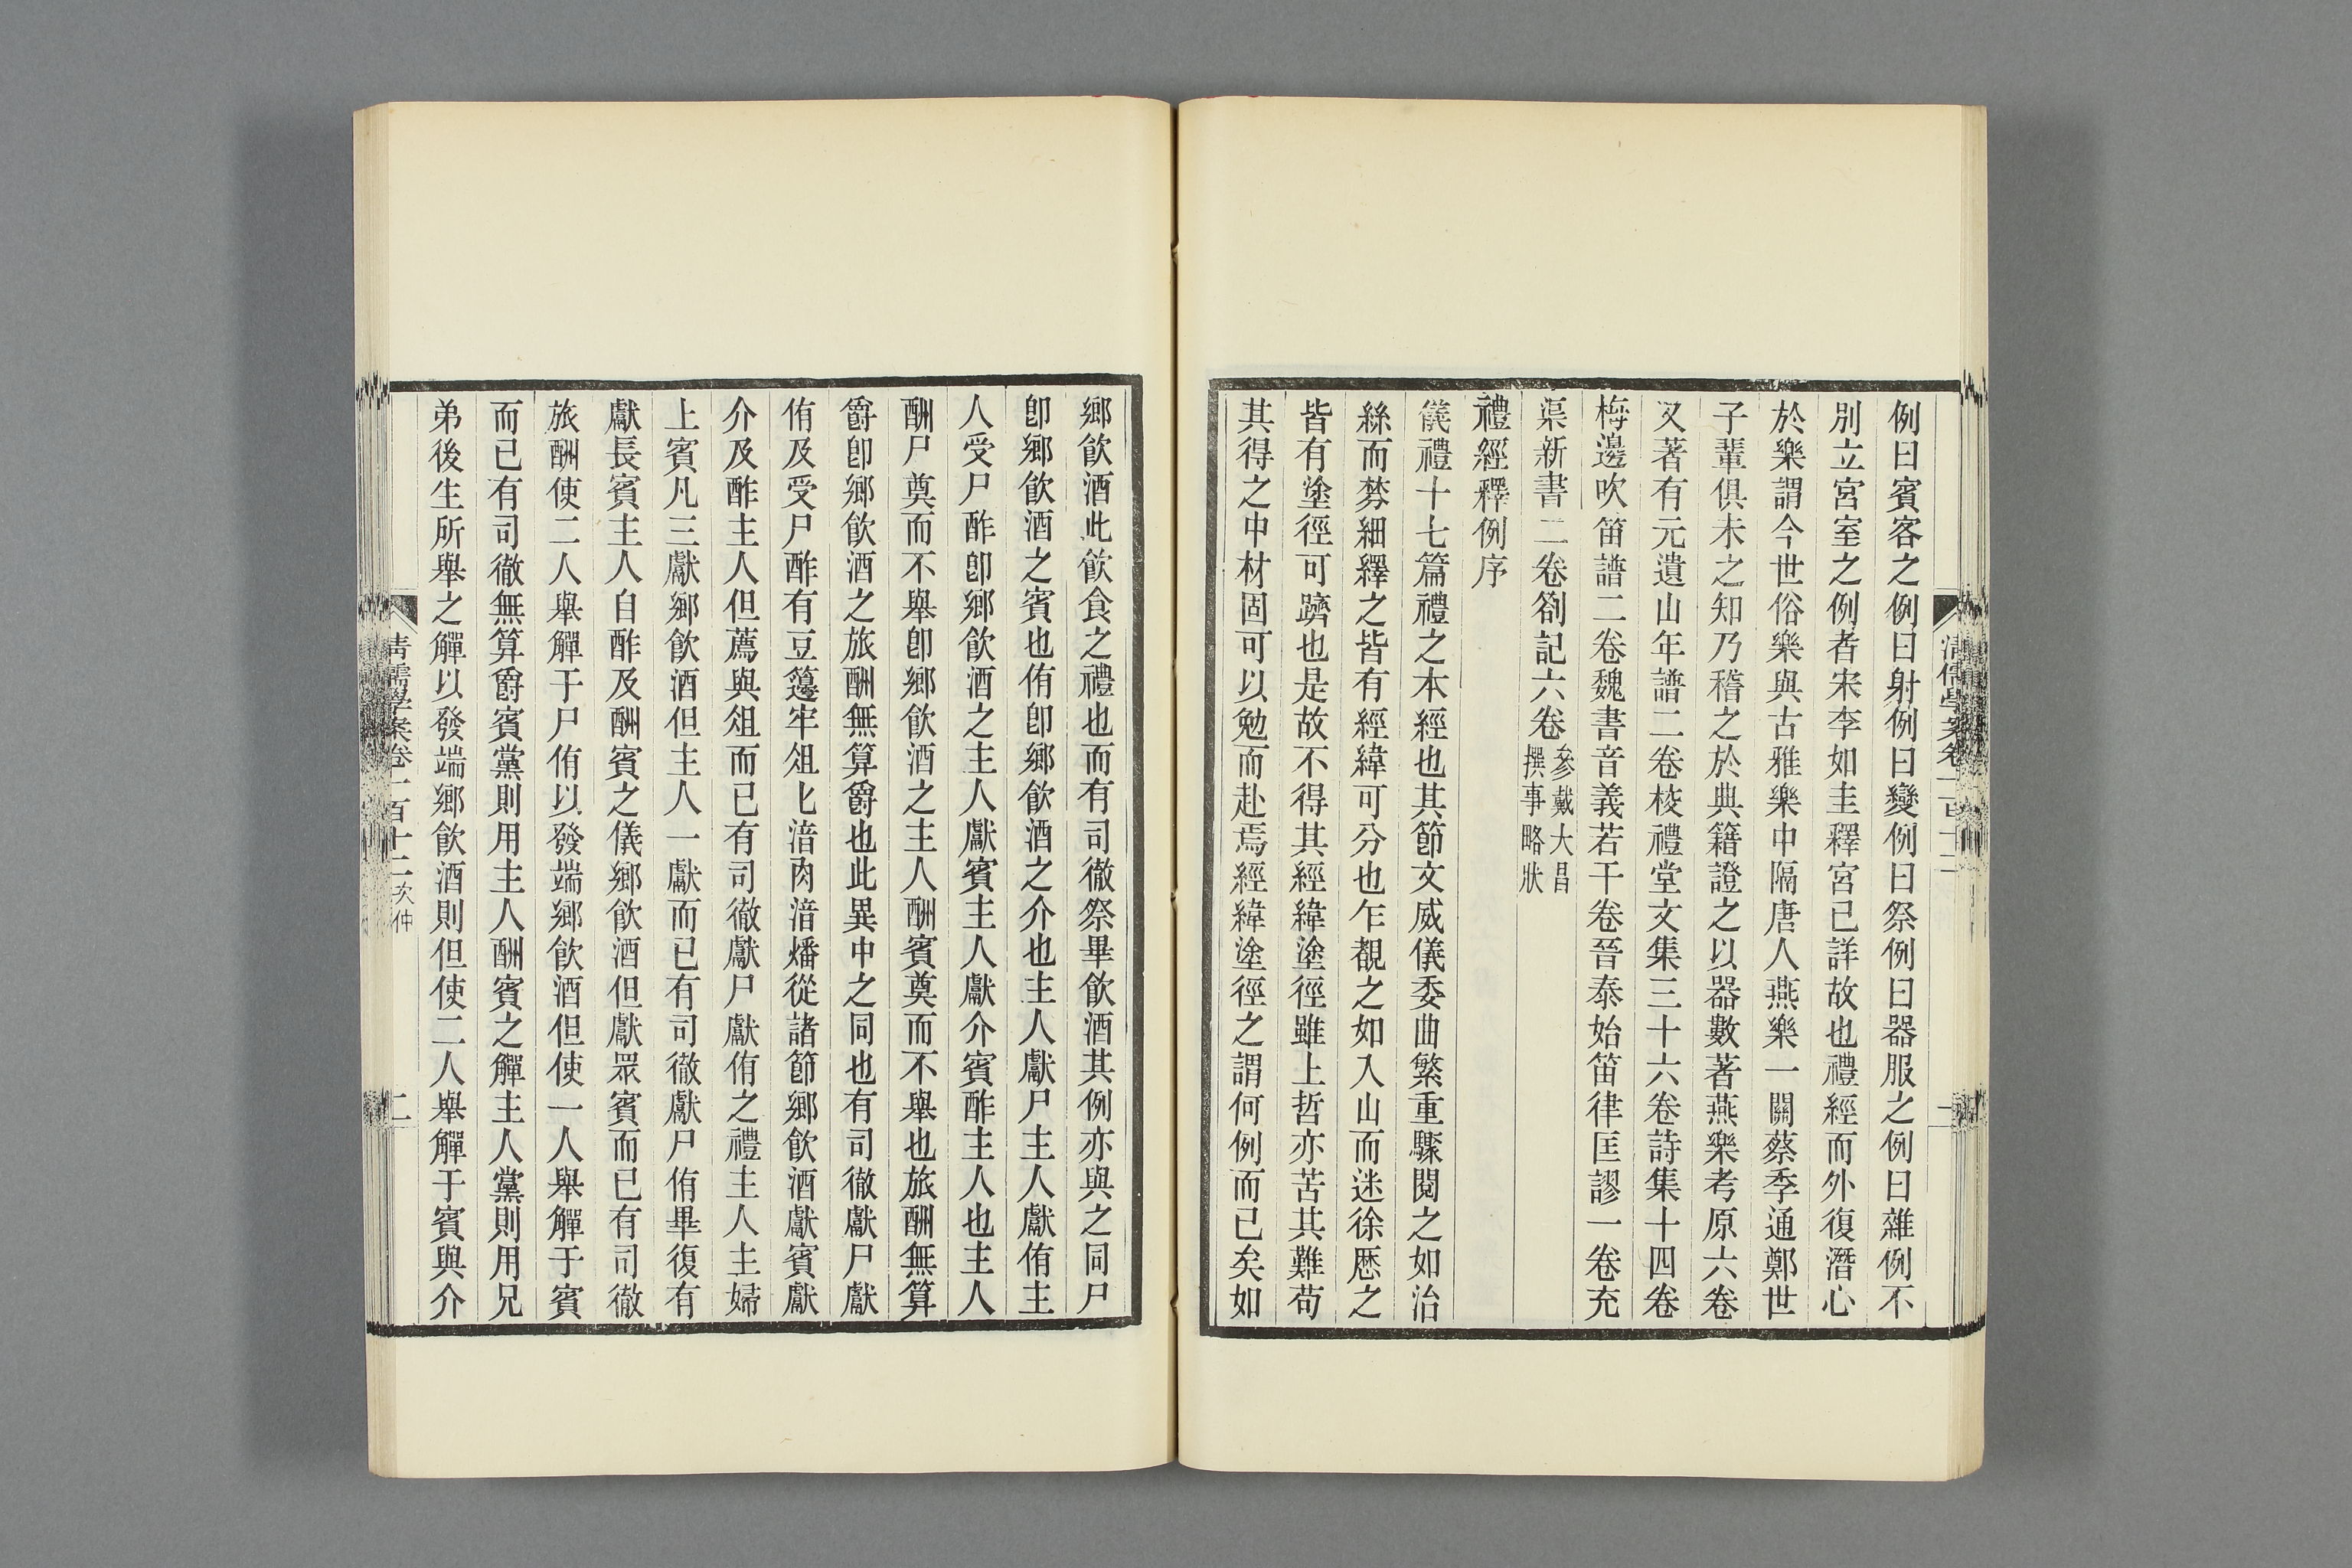 例曰賓客之例曰射例曰變例曰祭例曰器服之例曰雜例不
別立宮室之例者宋李如圭釋宮已詳故也禮經而外復潛心
於樂謂今世俗樂與古雅樂中隔唐人燕樂一關蔡季通鄭世
子輩俱未之知乃稽之於典籍證之以器數著燕樂考原六卷
又著有元遺山年譜二卷校禮堂文集三十六卷詩集十四卷
梅邊吹笛譜二卷魏書音義若干卷晉泰始笛律匡謬一卷充
渠新書二卷劄記六卷參戴大昌撰事略狀
禮經釋例序
儀禮十七篇禮之本經也其節文威儀委曲繁重驟閱之如治
絲而棼細繹之皆有經緯可分也乍覩之如入山而迷徐歷之
皆有塗徑可躋也是故不得其經緯塗徑雖上哲亦苦其難苟
其得之中材固可以勉而赴焉經緯塗徑之謂何例而已矣如
鄉飲酒此飲食之禮也而有司徹祭畢飲酒其例亦與之同尸
卽鄉飲酒之賓也侑卽鄉飲酒之介也主人獻尸主人獻侑主
人受尸酢卽鄉飲酒之主人獻賓主人獻介賓酢主人也主人
酬尸奠而不舉卽鄉飲酒之主人酬賓奠而不舉也旅酬無算
爵卽鄉飲酒之旅酬無算爵也此異中之同也有司徹獻尸獻
侑及受尸酢有豆籩牢俎匕湆肉湆燔從諸節鄉飲酒獻賓獻
介及酢主人但薦與俎而已有司徹獻尸獻侑之禮主人主婦
上賓凡三獻鄉飲酒但主人一獻而已有司徹獻尸侑畢復有
獻長賓主人自酢及酬賓之儀鄉飲酒但獻眾賓而已有司徹
旅酬使二人舉觶于尸侑以發端鄉飲酒但使一人舉觶于賓
而已有司徹無算爵賓黨則用主人酬賓之觶主人黨則用兄
弟後生所舉之觶以發端鄉飲酒則但使二人舉觶于賓與介
清儒學案卷一百十二 次仲
二